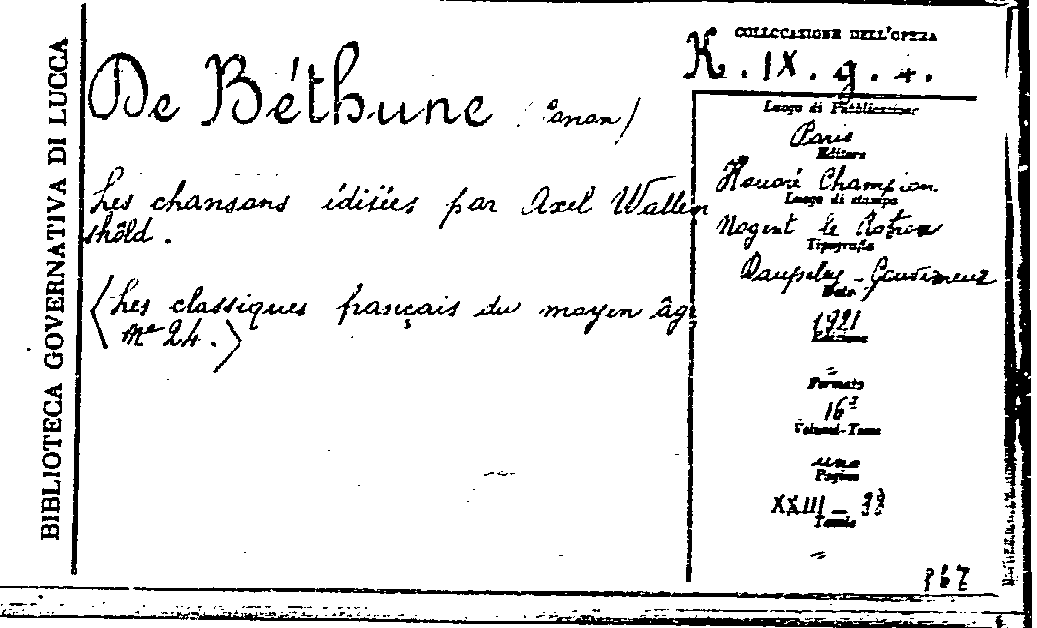 BIBLIOTECA GOVERNATIVA DI LUCCA
De Béthune (Conon)
Les chansons éditées par Axel Wallen
shöld.
(Les classiques français du moyen âg
Nº 24.)
COLLOCAZIONE DELL'OPERA
K. IX. g. 4.
Luogo di Pubblicazione
Paris
Editore
Honoré Champion
Luogo di stampa
Nogent le Rotrou
Tipografia
Daupeley-Gouverneur
Data
1921
Edizione
=
Formato
16º
Volumi-Tomo
uno
Pagine
XXIII-
Tavole
=